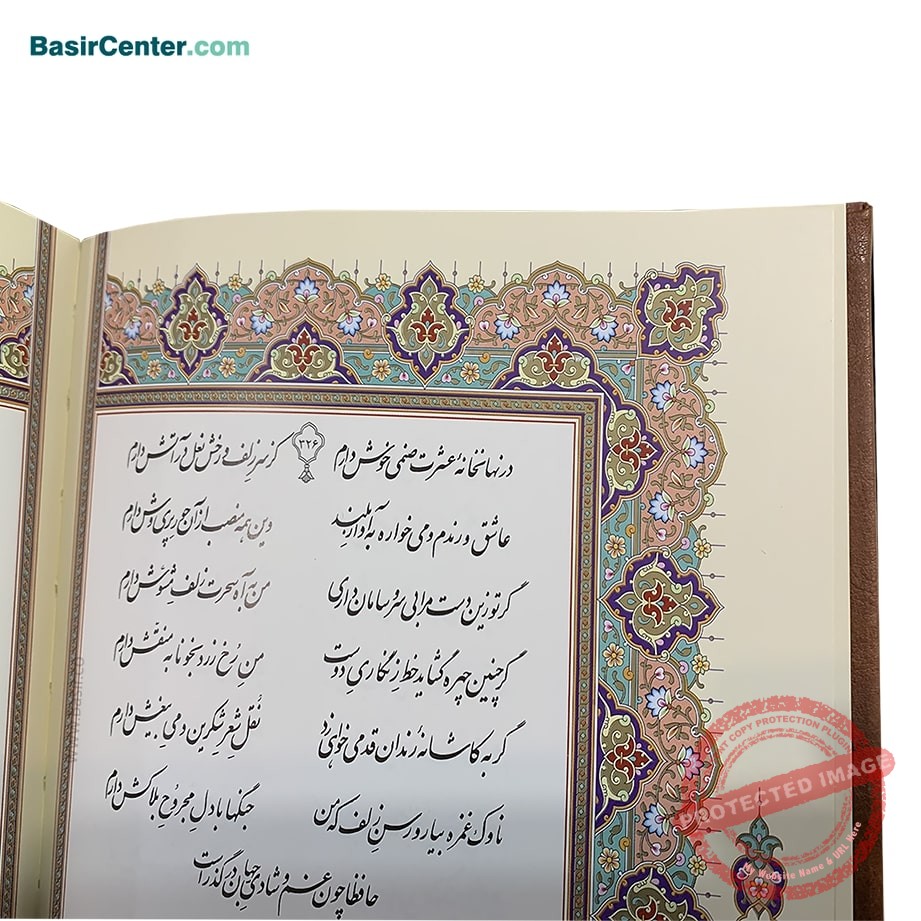 BasirCenter.com
در نهانخانهٔ عشرت صنمی خوش دارم ۳۲۶ کز سر زلف و رخش نعل در آتش دارم
عاشق و رندم و می خواره به آواز بلند وین همه منصب از آن حور پری وش دارم
گر تو زین دست مرا بی سر و سامان داری من به آه سحرت زلفِ مشوّش دارم
گر چنین چهره گشاید خط زنگاریِ دوست من رُخ زرد بخونابه منقش دارم
گر به کاشانهٔ رندان قدمی خواهی زد نُقل شعرِ شکرین و می بیغش دارم
ناوک غمزه بیار و رسن زلف که من جنگها با دلِ مجروحِ بلاکش دارم
حافظا چون غم و شادیِ جهان در گذر است
COPY PROTECTION PLUGIN
PROTECTED IMAGE
My Website Name & URL Here